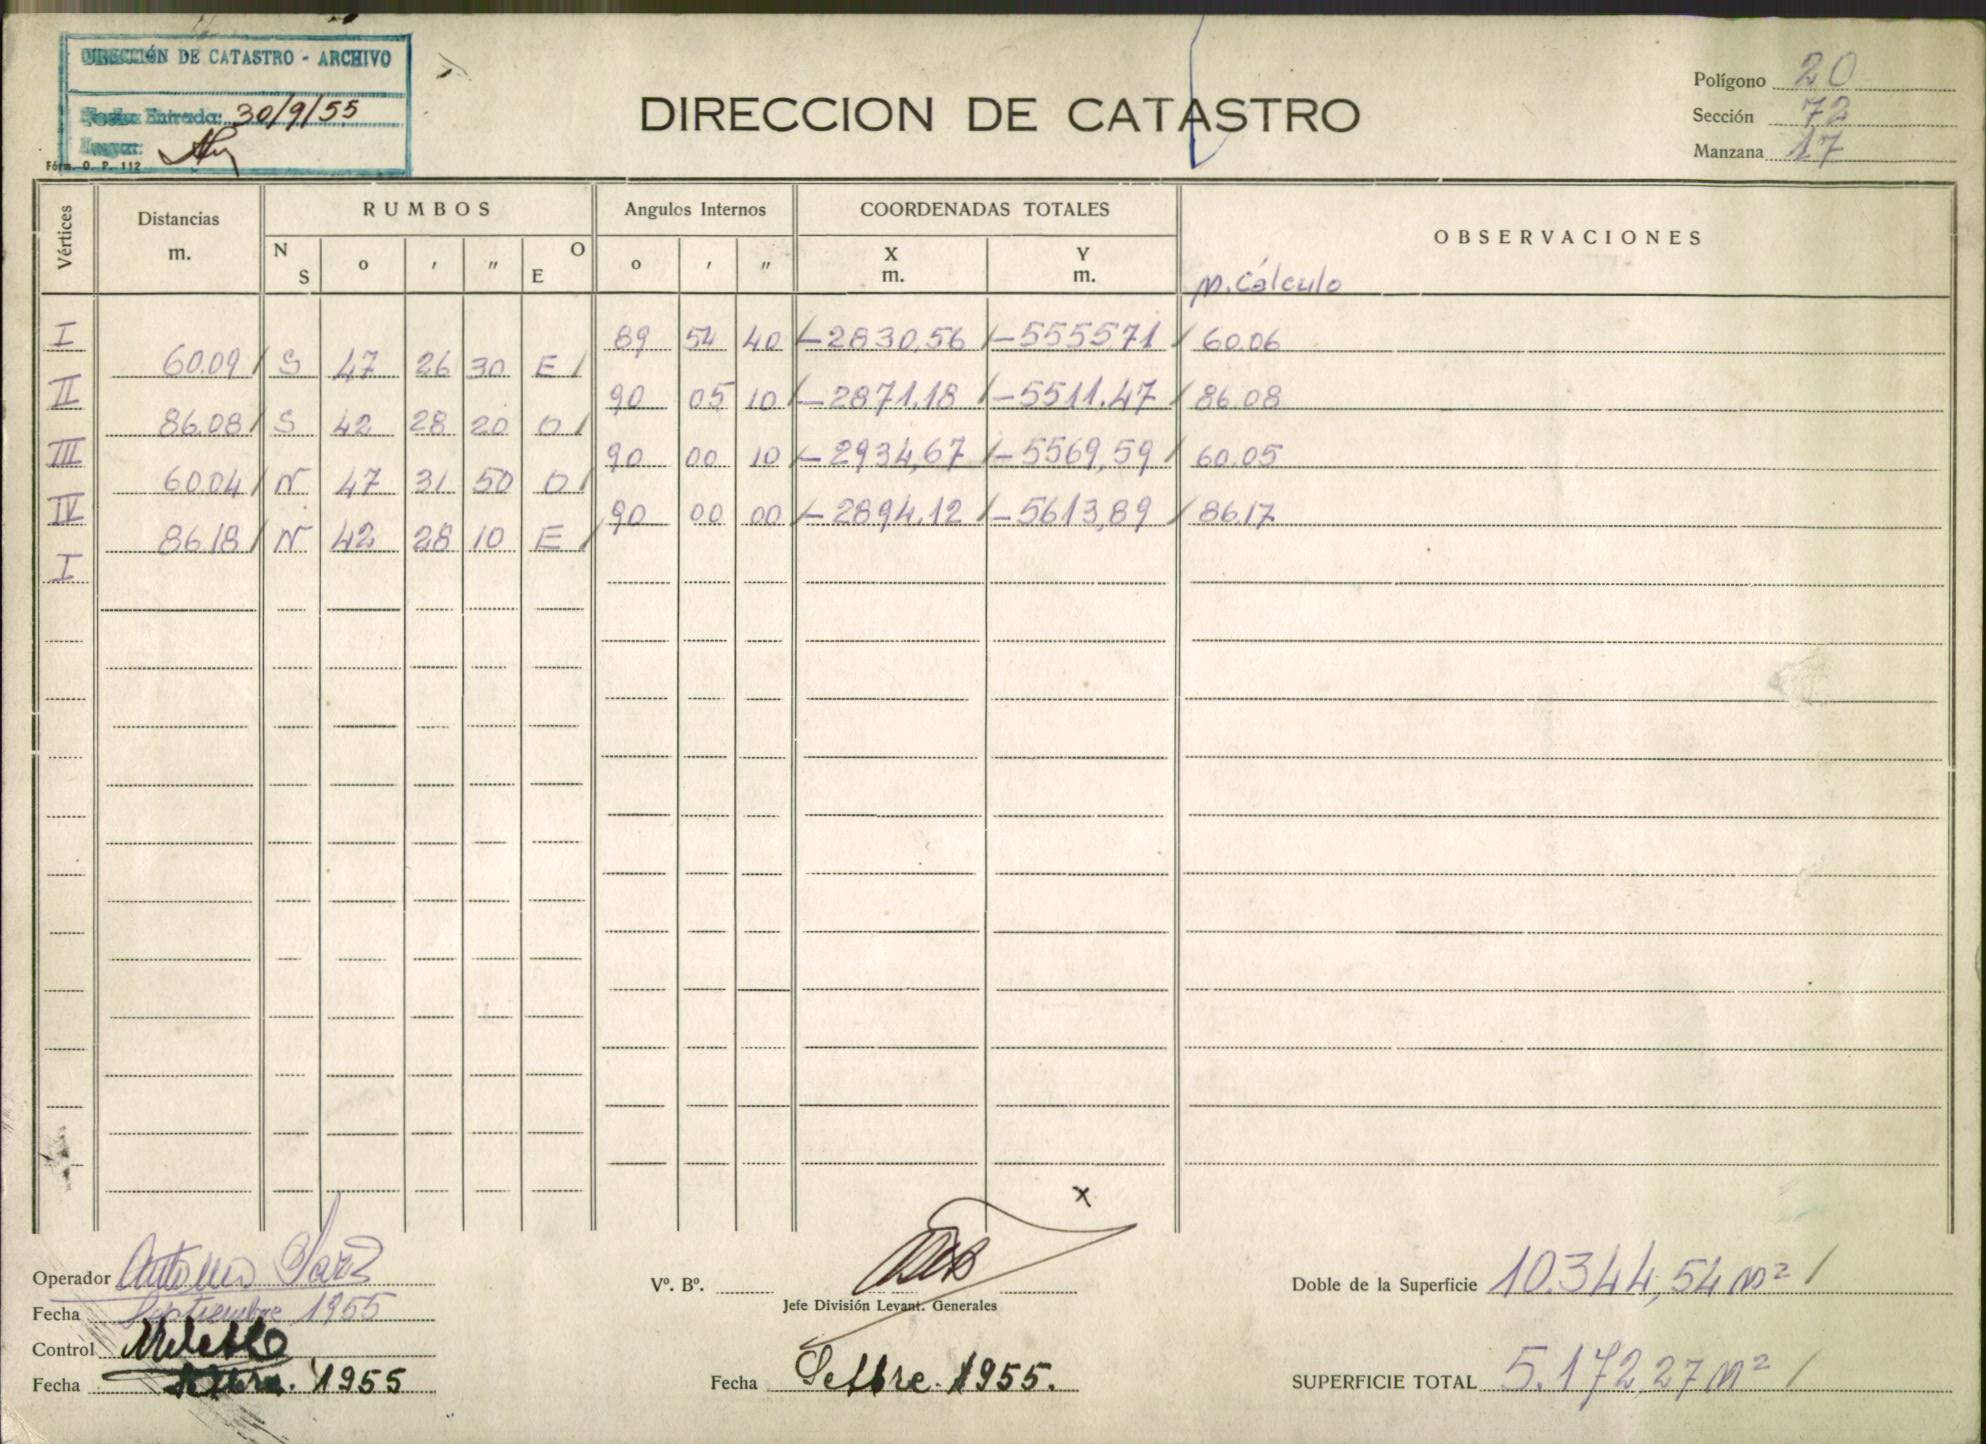 DIRECCIÓN DE CATASTRO - ARCHIVO
Fecha Entrada: 30/9/55
Fórm. O. P. 112
DIRECCION DE CATASTRO
Polígono 20
Sección 72
Manzana 17
Vértices Distancias m. RUMBOS Angulos Internos COORDENADAS TOTALES OBSERVACIONES
N S o ' " O E o ' " X m. Y m. M. Cálculo
I 89 54 40 -2830,56 -5555,71 60.06
60.09 S 47 26 30 E
II 90 05 10 -2871.18 -5511.47 86.08
86.08 S 42 28 20 O
III 90 00 10 -2934,67 -5569,59 60.05
60.04 N 47 31 50 O
IV 90 00 00 -2894.12 -5613,89 86.17
86.18 N 42 28 10 E
I
x
Operador Antonio
Fecha Septiembre 1955
Control
Fecha Setbre. 1955
Vº. Bº.
Jefe División Levant. Generales
Fecha Setbre. 1955.
Doble de la Superficie 10.344,54 m²
SUPERFICIE TOTAL 5.172,27 m²